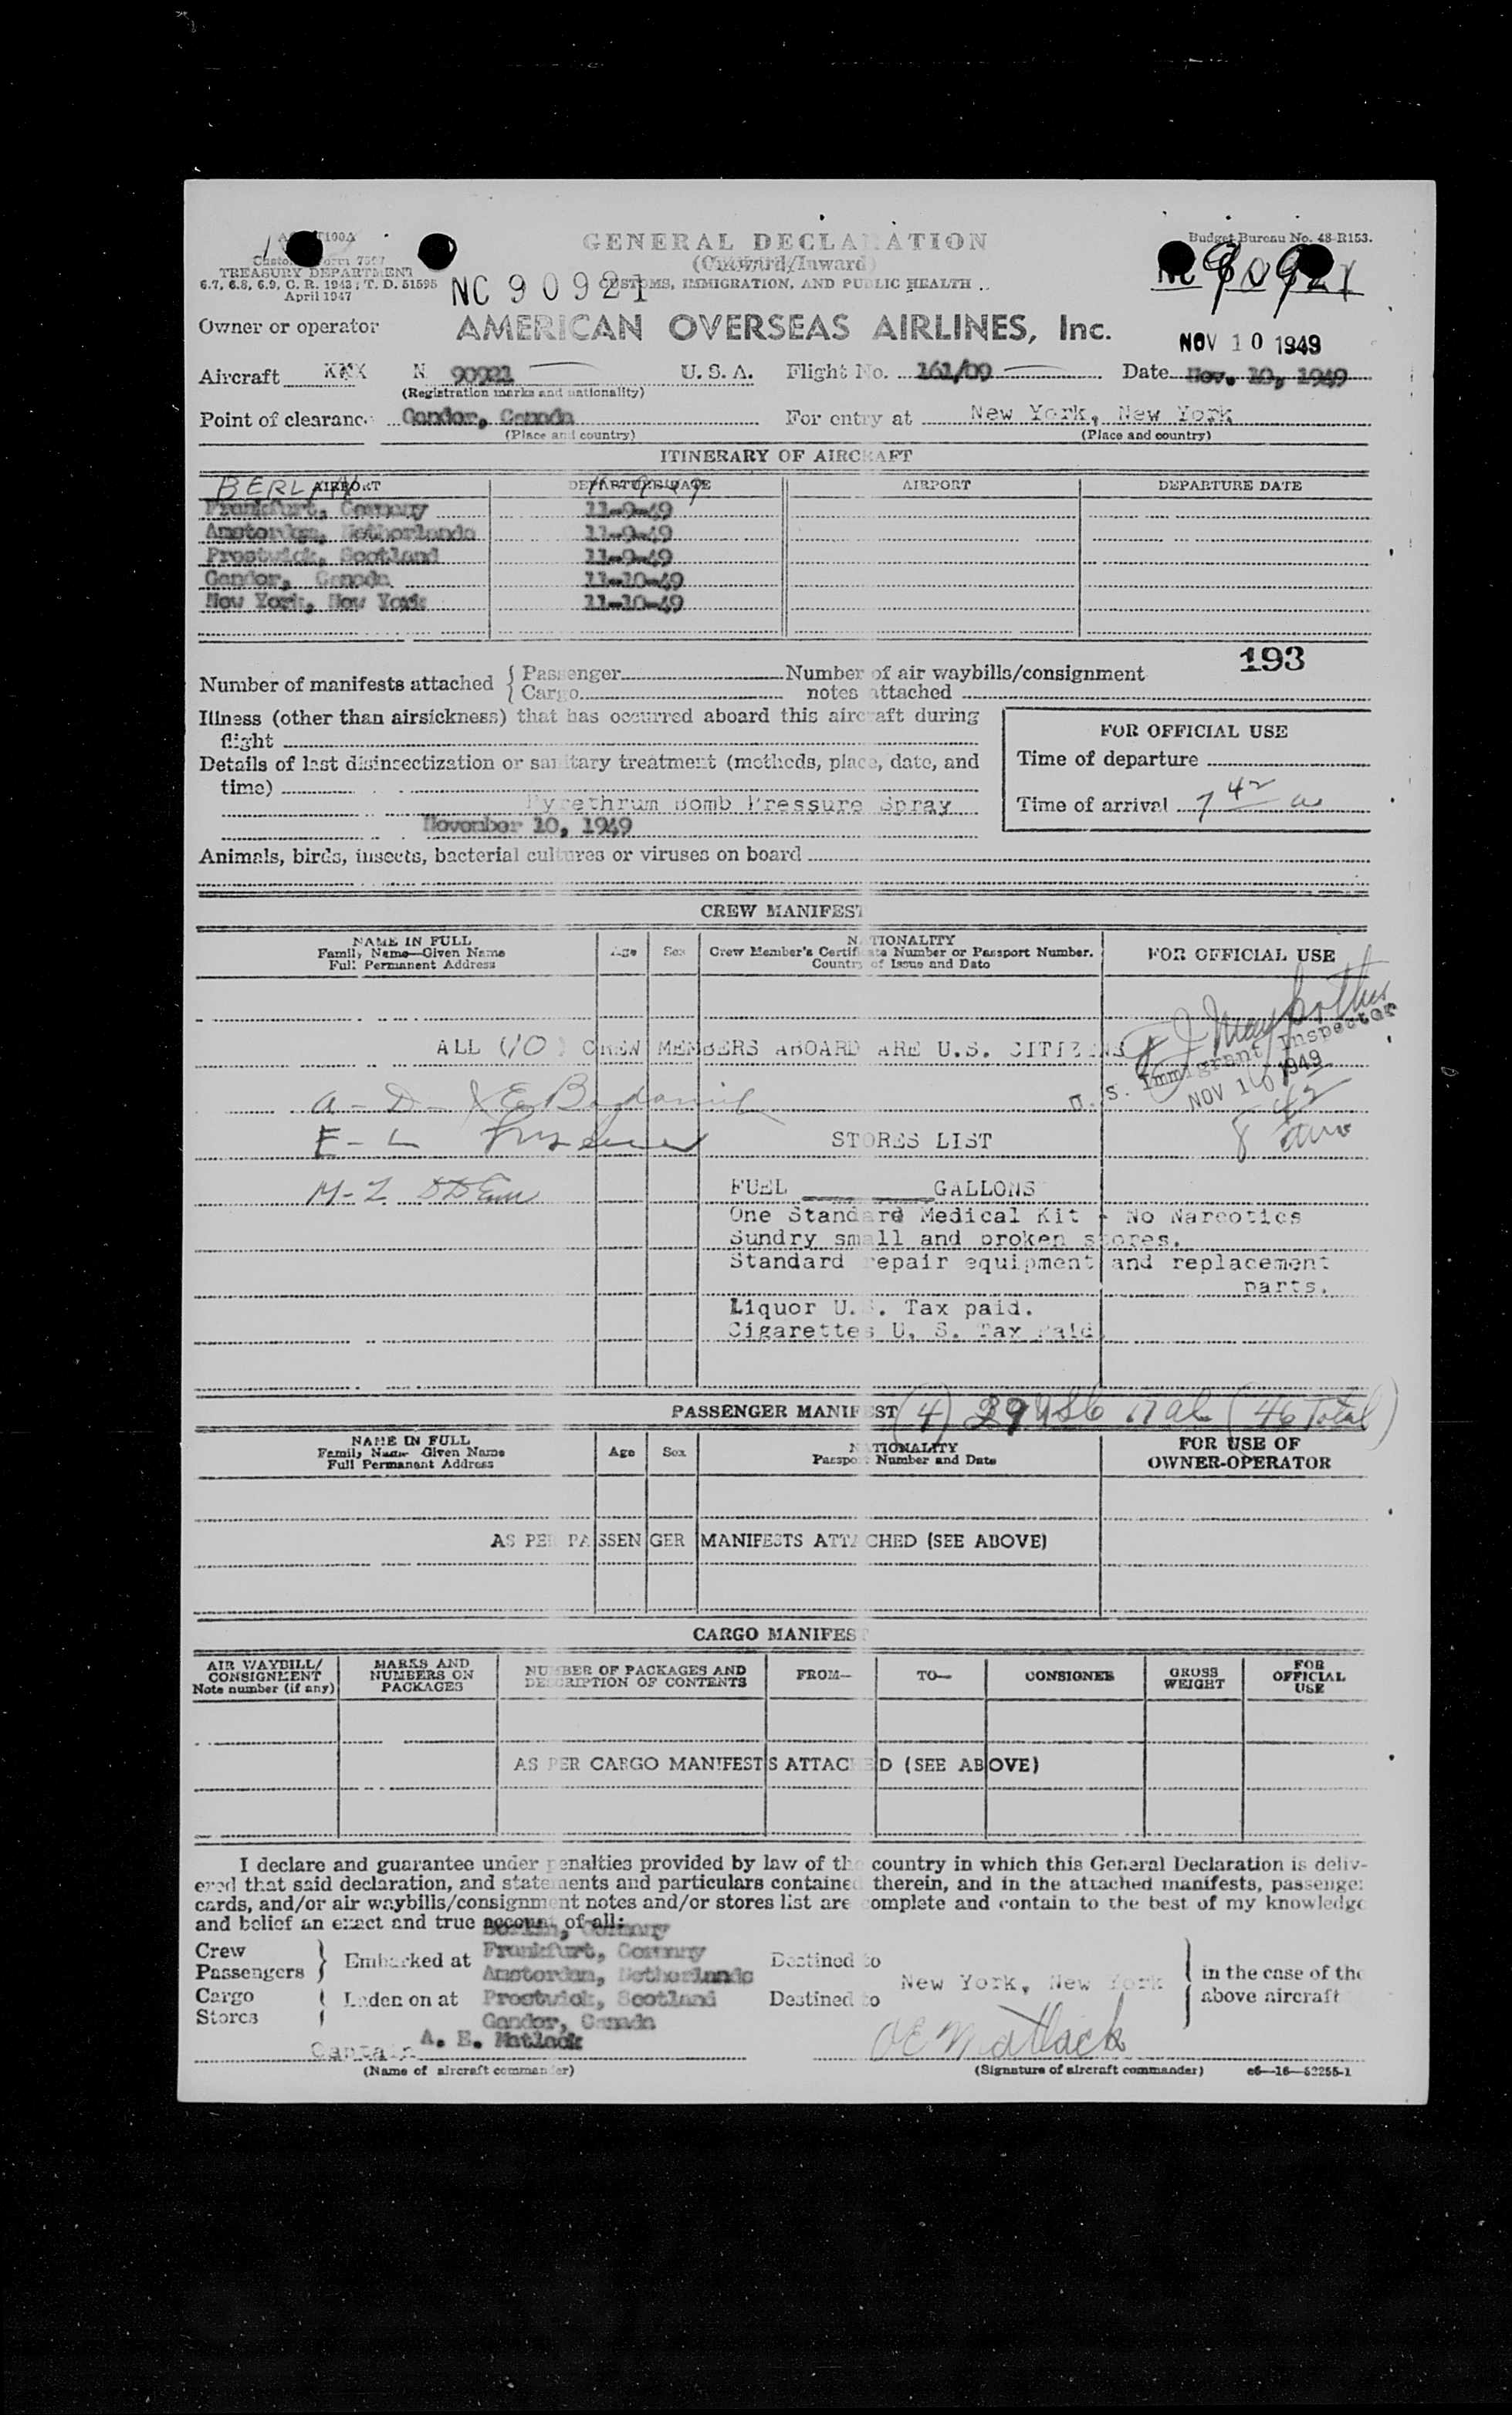 GENERAL DECLARATION
Budget Bureau No. 48-R153.
(Outward/Inward)
TREASURY DEPARTMENT
6.7, 6.8, 6.9, C. R. 1943; T. D. 51595
April 1947
CUSTOMS, IMMIGRATION, AND PUBLIC HEALTH
NC 90921
NC 90921
Owner or operator AMERICAN OVERSEAS AIRLINES, Inc.
NOV 10 1949
Aircraft N 90921 U. S. A. Flight No. 161/09 Date Nov. 10, 1949
(Registration marks and nationality)
Point of clearance Gander, Canada For entry at New York, New York
(Place and country) (Place and country)
ITINERARY OF AIRCRAFT
AIRPORT DEPARTURE DATE AIRPORT DEPARTURE DATE
BERLIN
Frankfurt, Germany 11-9-49
Amsterdam, Netherlands 11-9-49
Prestwick, Scotland 11-9-49
Gander, Canada 11-10-49
New York, New York 11-10-49
193
Number of manifests attached { Passenger Number of air waybills/consignment
Cargo notes attached
Illness (other than airsickness) that has occurred aboard this aircraft during
flight
FOR OFFICIAL USE
Time of departure
Details of last disinsectization or sanitary treatment (methods, place, date, and
time)
Pyrethrum Bomb Pressure Spray
Time of arrival 7 42 a
November 10, 1949
Animals, birds, insects, bacterial cultures or viruses on board
CREW MANIFEST
NAME IN FULL
Family Name—Given Name
Full Permanent Address
Age Sex
NATIONALITY
Crew Member's Certificate Number or Passport Number.
Country of Issue and Date
FOR OFFICIAL USE
ALL (10) CREW MEMBERS ABOARD ARE U.S. CITIZENS
U. S. Immigrant Inspector
NOV 10 1949
8 42
A - D -
E - L
STORES LIST
M - Z
FUEL GALLONS
One Standard Medical Kit - No Narcotics
Sundry small and broken stores.
Standard repair equipment and replacement
parts.
Liquor U.S. Tax paid.
Cigarettes U. S. Tax Paid
PASSENGER MANIFEST (4) (46 Total)
NAME IN FULL
Family Name Given Name
Full Permanent Address
Age Sex
NATIONALITY
Passport Number and Date
FOR USE OF
OWNER-OPERATOR
AS PER PASSENGER MANIFESTS ATTACHED (SEE ABOVE)
CARGO MANIFEST
AIR WAYBILL/
CONSIGNMENT
Note number (if any)
MARKS AND
NUMBERS ON
PACKAGES
NUMBER OF PACKAGES AND
DESCRIPTION OF CONTENTS
FROM— TO— CONSIGNEE
GROSS
WEIGHT
FOR
OFFICIAL
USE
AS PER CARGO MANIFESTS ATTACHED (SEE ABOVE)
I declare and guarantee under penalties provided by law of the country in which this General Declaration is deliv-
ered that said declaration, and statements and particulars contained therein, and in the attached manifests, passenger
cards, and/or air waybills/consignment notes and/or stores list are complete and contain to the best of my knowledge
and belief an exact and true account of all:
Berlin, Germany
Crew
Passengers } Embarked at Frankfurt, Germany Destined to
Amsterdam, Netherlands New York, New York } in the case of the
Cargo
Stores { Laden on at Prestwick, Scotland Destined to above aircraft
Gander, Canada
Captain A. E. Matlack AE Matlack
(Name of aircraft commander) (Signature of aircraft commander) c6—16—52255-1